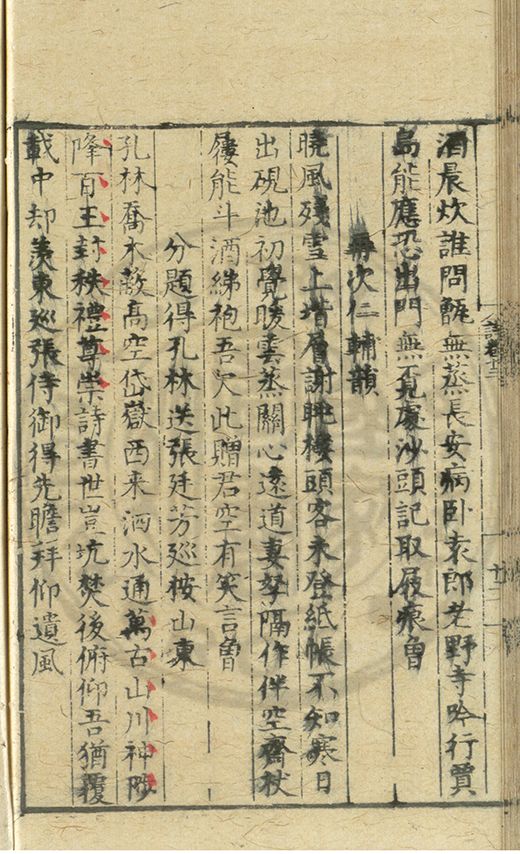 酒晨炊誰問甑無蒸長安病卧袁郎老野寺吟行賈
島能應恐出門無覓處沙頭記取屐痕曾
再次仁輔韻
曉風殘雪上堦層謝眺樓頭客未登紙帳不知寒日
出硯池初覺暖雲蒸關心遠道妻孥隔作伴空齋杖
屨能斗酒綈袍吾欠此贈君空有笑言曾
分題得孔林送張廷芳巡按山東
孔林喬木蔽高空岱嶽西来洒水通萬古山川神陟
降百王封秩禮尊崇詩書世豈坑焚後俯仰吾猶覆
載中却羨東巡張侍御得先瞻拜仰遺風